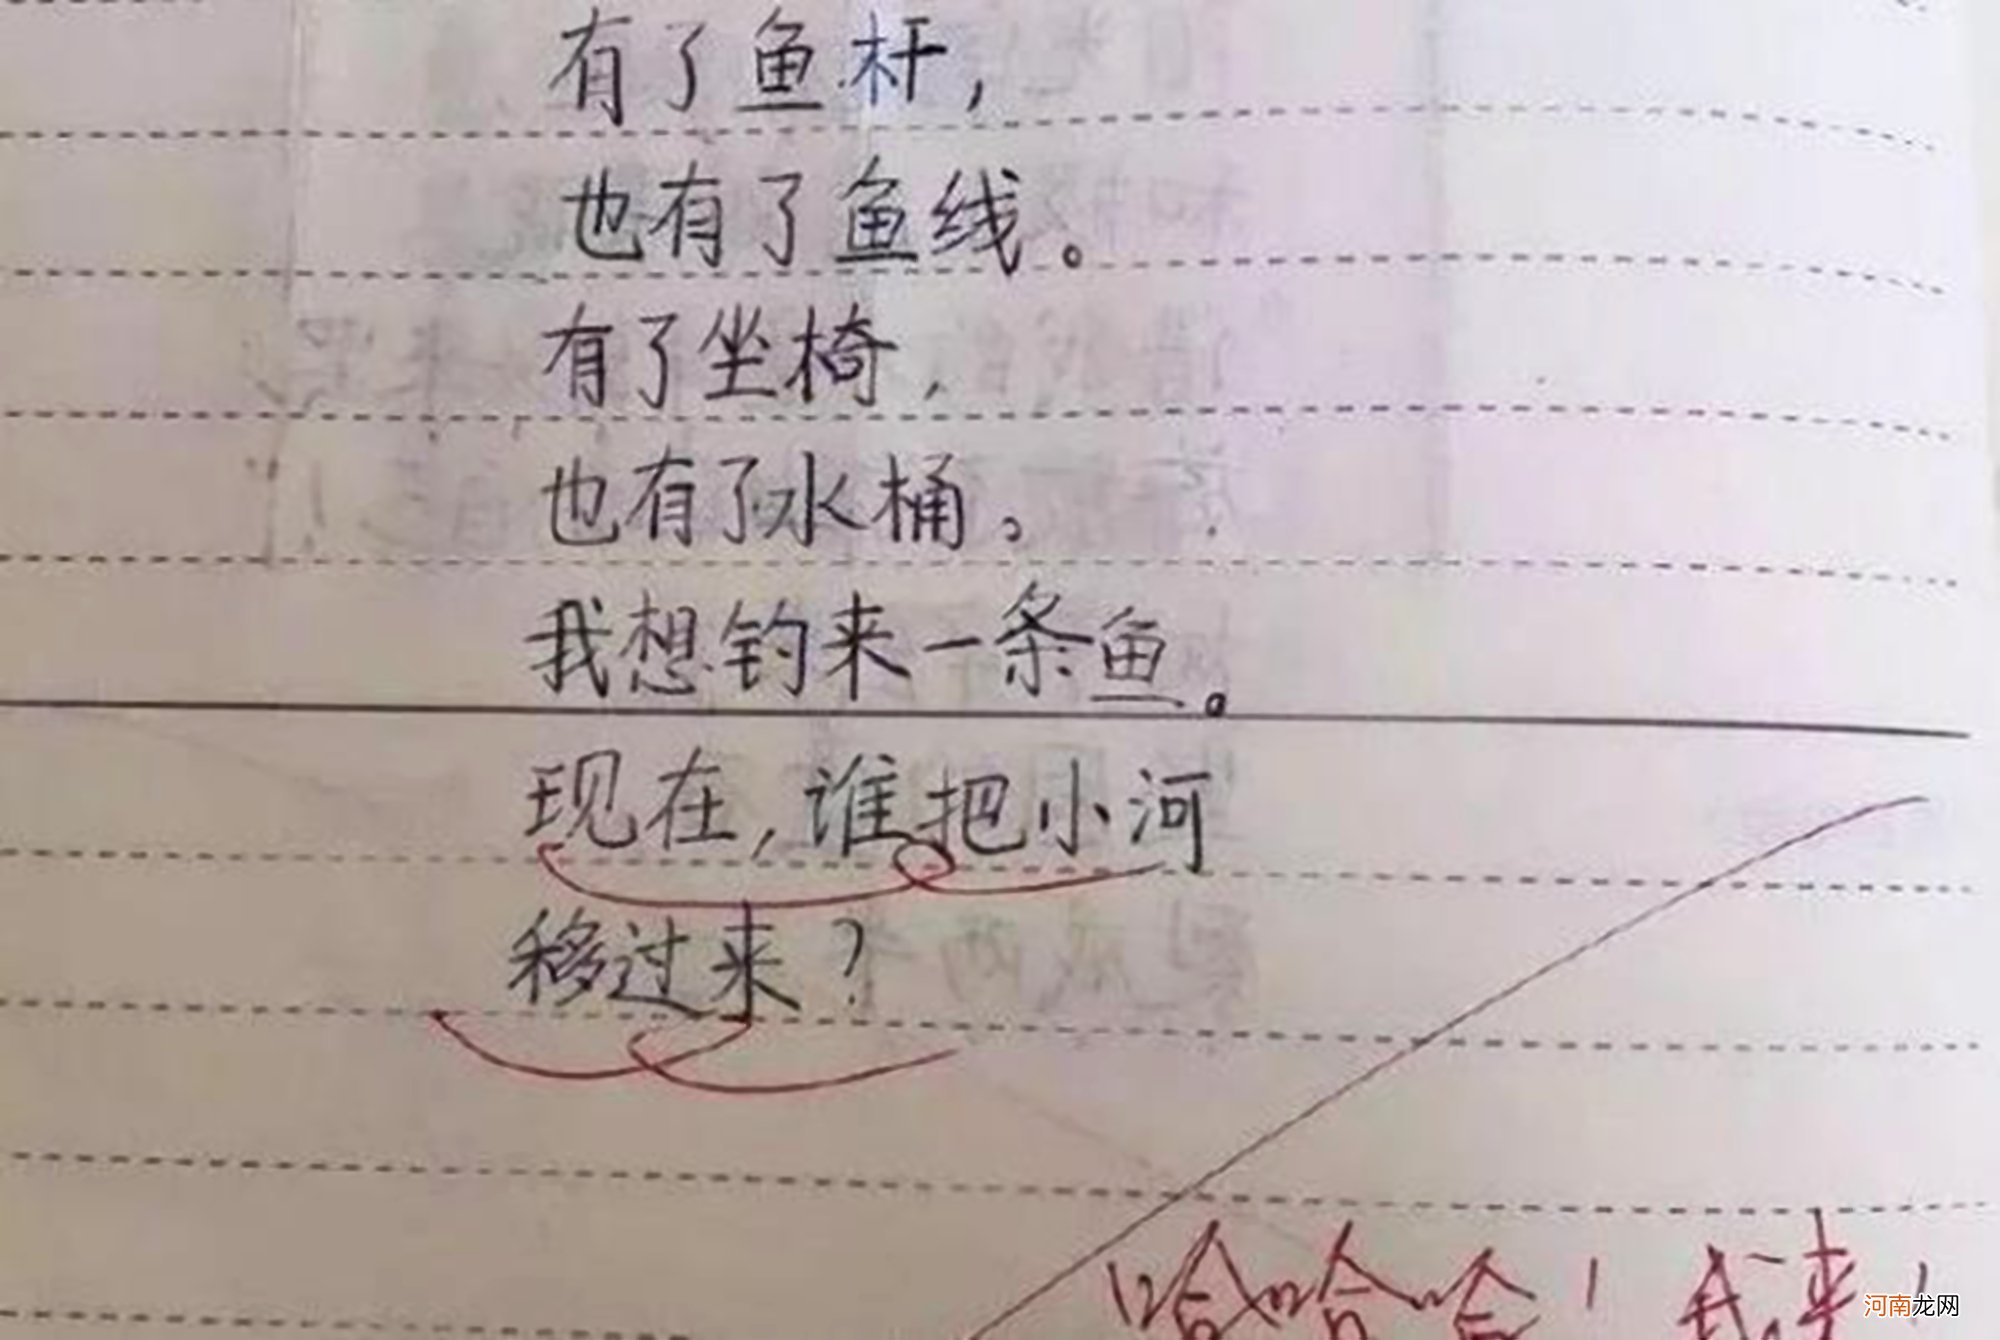 有了鱼杆，
也有了鱼线。
有了坐椅，
也有了水桶。
我想钓来一条鱼。
现在，谁把小河
移过来？
哈哈哈！我来！
河南龙网